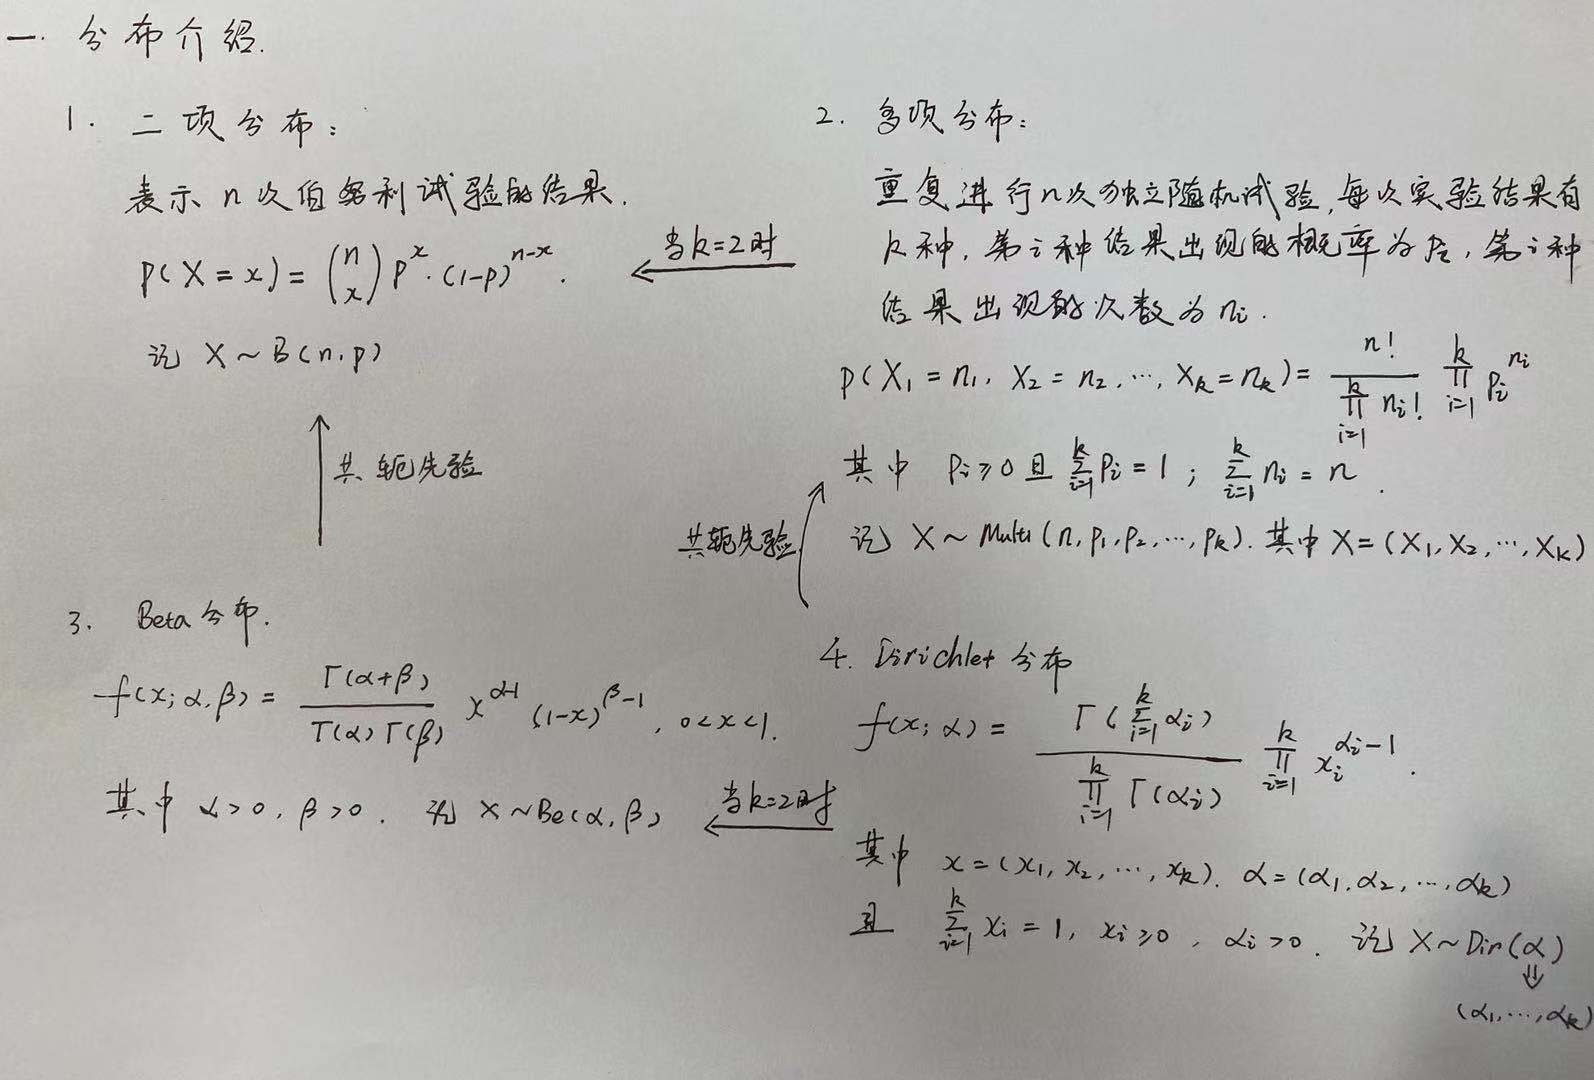 一. 分布介绍.
1. 二项分布:
表示 n 次伯努利试验的结果.
P(X = x) = (n x) p^x · (1-p)^{n-x}.
记 X ~ B(n, p)
当k=2时
共轭先验
2. 多项分布:
重复进行n次独立随机试验, 每次实验结果有
k种, 第i种结果出现的概率为p_i, 第i种
结果出现的次数为n_i.
P(X_1 = n_1, X_2 = n_2, ⋯, X_k = n_k) = \frac{n!}{\prod_{i=1}^{k} n_i!} \prod_{i=1}^{k} p_i^{n_i}
其中 p_i ≥ 0 且 \sum_{i=1}^{k} p_i = 1 ; \sum_{i=1}^{k} n_i = n.
记 X ~ Multi(n, p_1, p_2, ⋯, p_k). 其中 X = (X_1, X_2, ⋯, X_k)
共轭先验
3. Beta分布.
f(x; α, β) = \frac{Γ(α+β)}{Γ(α)Γ(β)} x^{α-1} (1-x)^{β-1}, 0<x<1.
其中 α>0, β>0. 记 X ~ Be(α, β)
当k=2时
4. Dirichlet 分布
f(x; α) = \frac{Γ(\sum_{i=1}^{k} α_i)}{\prod_{i=1}^{k} Γ(α_i)} \prod_{i=1}^{k} x_i^{α_i-1}.
其中 x = (x_1, x_2, ⋯, x_k). α = (α_1, α_2, ⋯, α_k)
且 \sum_{i=1}^{k} x_i = 1, x_i ≥ 0, α_i > 0. 记 X ~ Dir(α)
⇓
(α_1, ⋯, α_k)